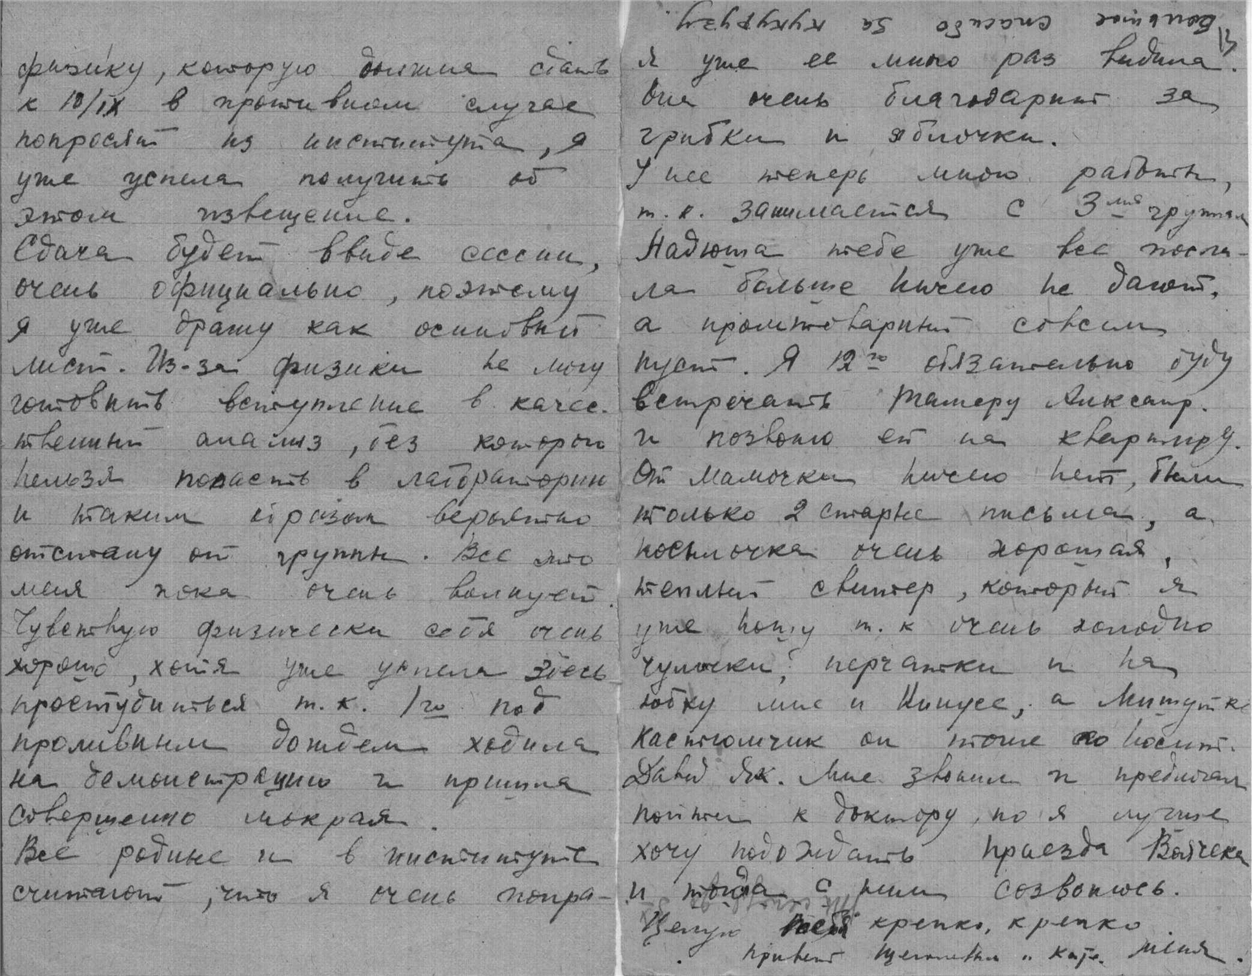 физику, которую должна сдать
к 10/IX в противном случае
попросят из института, я
уже успела получить об
этом извещение.
Сдача будет ввиде сессии,
очень официально, поэтому
я уже дрожу как осиновый
лист. Из-за физики не могу
готовить вступление в качес-
твенный анализ, без которого
нельзя попасть в лабораторию
и таким образом вероятно
отстану от группы. Все это
меня пока очень волнует.
Чувствую физически себя очень
хорошо, хотя уже успела здесь
простудиться т.к. 1го под
проливным дождем ходила
на демонстрацию и пришла
совершенно мокрая.
Все родные и в институте
считают, что я очень попра-
Большое спасибо за кукурузу
я уже ее много раз видила.
Она очень благодарит за
грибки и яблочки.
У нее теперь много работы,
т.к. занимается с 3мя группам
Надюша тебе уже все посла-
ла больше ничего не дают,
а промтоварный совсем
пуст. Я 12го обязательно буду
встречать Тамару Александр.
и позвоню ей на квартиру.
От Мамочки ничего нет, были
только 2 старые письма, а
посылочка очень хорошая,
теплый свитер, который я
уже ношу т.к очень холодно
чулочки, перчатки и на
юбку мне и Кинусе, а Мишутке
кастюмчик он тоже носит.
Давид Як. мне звонил и предлагал
пойти к доктору, но я лучше
хочу подождать приезда
и тогда с ним созвонюсь.
Целую тебя крепко, крепко
Привет